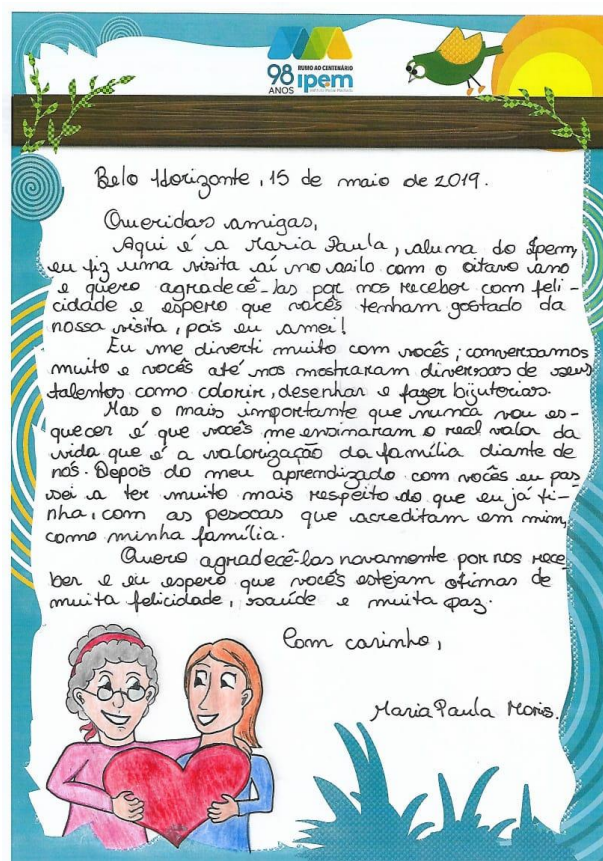 RUMO AO CENTENÁRIO
98 ipem
ANOS
Belo Horizonte, 15 de maio de 2019.
Queridas amigas,
Aqui é a Maria Paula, aluna do Ipem,
eu fiz uma visita aí no asilo com o oitavo ano
e quero agradecê-las por nos receber com feli-
cidade e espero que vocês tenham gostado da
nossa visita, pois eu amei!
Eu me diverti muito com vocês; conversamos
muito e vocês até nos mostraram diversas de seus
talentos como colorir, desenhar e fazer bijuterias.
Mas o mais importante que nunca vou es-
quecer é que vocês me ensinaram o real valor da
vida que é a valorização da família diante de
nós. Depois do meu aprendizado com vocês eu pas
sei a ter muito mais respeito do que eu já ti-
nha, com as pessoas que acreditam em mim,
como minha família.
Quero agradecê-las novamente por nos rece
ber e eu espero que vocês estejam ótimas de
muita felicidade, saúde e muita paz.
Com carinho,
Maria Paula